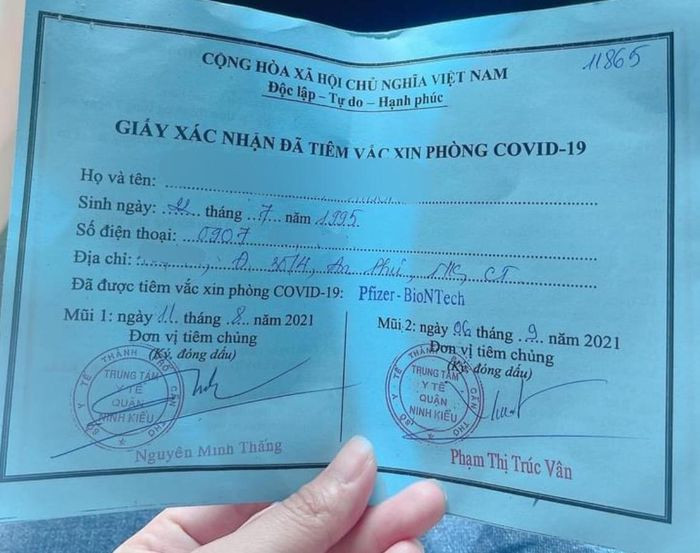 CỘNG HÒA XÃ HỘI CHỦ NGHĨA VIỆT NAM
11865
Độc lập – Tự do – Hạnh phúc
GIẤY XÁC NHẬN ĐÃ TIÊM VẮC XIN PHÒNG COVID-19
Họ và tên:
Sinh ngày: tháng 7 năm 1995
Số điện thoại: 0907
Địa chỉ: An Phú, NK, CT
Đã được tiêm vắc xin phòng COVID-19: Pfizer - BioNTech
Mũi 1: ngày 11 tháng 8 năm 2021
Đơn vị tiêm chủng
(Ký, đóng dấu)
SỞ Y TẾ THÀNH PHỐ CẦN THƠ
TRUNG TÂM
Y TẾ
QUẬN
NINH KIỀU
Nguyễn Minh Thắng
Mũi 2: ngày 06 tháng 9 năm 2021
Đơn vị tiêm chủng
(Ký, đóng dấu)
SỞ Y TẾ THÀNH PHỐ CẦN THƠ
TRUNG TÂM
Y TẾ
QUẬN
NINH KIỀU
Phạm Thị Trúc Vân